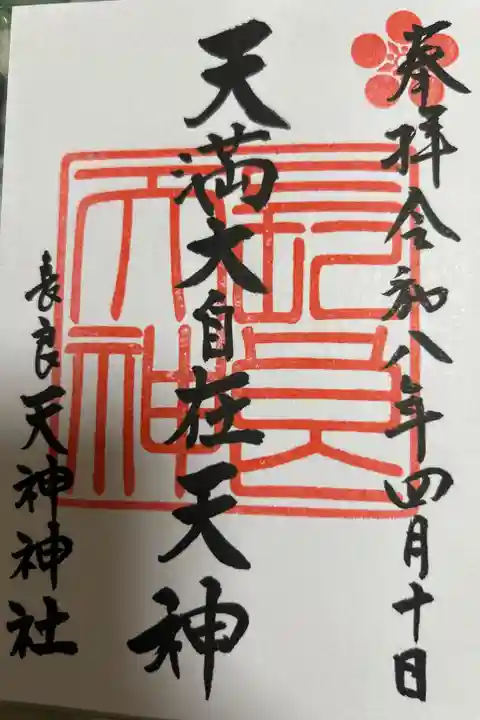 奉拝 令和八年四月十日
天満大自在天神
長良天神神社
長良天神